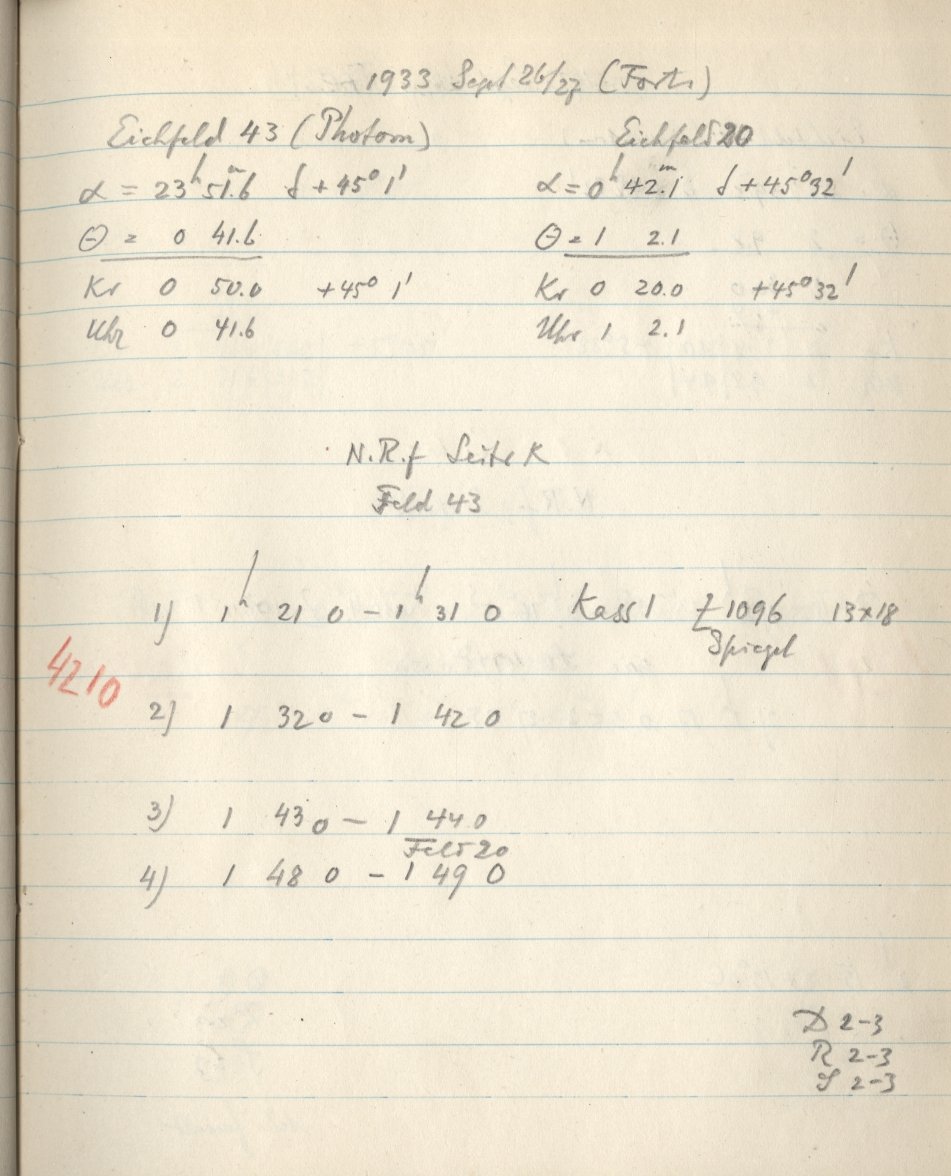 1933 Sept 26/27 (Forts)
Eichfeld 43 (Photom)
α = 23h 51.6m δ +45° 1'
Θ = 0 41.6
Kr 0 50.0 +45° 1'
Uhr 0 41.6
Eichfeld 20
α = 0h 42.1m δ +45° 32'
Θ = 1 2.1
Kr 0 20.0 +45° 32'
Uhr 1 2.1
N.R.f Seite K
Feld 43
1) 1h 21 0 – 1h 31 0 Kass 1 Z 1096 13x18
Spiegel
4210
2) 1 32 0 – 1 42 0
3) 1 43 0 – 1 44 0
Feld 20
4) 1 48 0 – 1 49 0
D 2-3
R 2-3
S 2-3